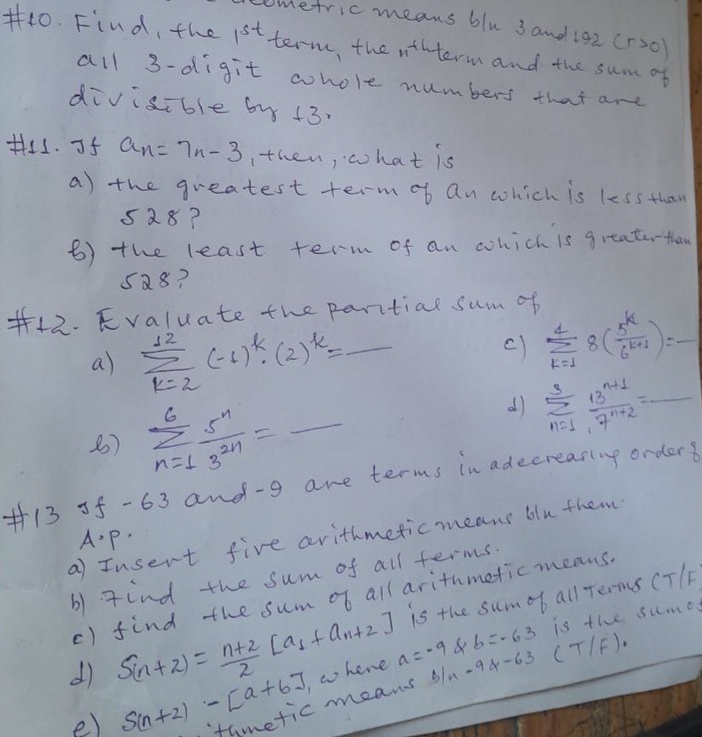 geometric means b/n 3 and 192 (r>0)
#10. Find, the 1st term, the nth term and the sum of
all 3-digit whole numbers that are
divisible by 13.
#11. If an = 7n - 3, then, what is
a) the greatest term of an which is less than
528?
b) the least term of an which is greater than
528?
#12. Evaluate the paritial sum of
a) 12 ∑ k=2 (-1)^k . (2)^k = —
b) 6 ∑ n=1 5^n / 3^2n = —
c) 4 ∑ k=1 8 (5^k / 6^k+1) = —
d) 3 ∑ n=1 13^n+1 / 7^n+2 = —
#13 If -63 and -9 are terms in a decreasing order of
A.p.
a) Insert five arithmetic means b/n them.
b) Find the sum of all terms.
c) find the sum of all arithmetic means.
d) S(n+2) = n+2 / 2 [a1 + an+2] is the sum of all Terms (T/F)
e) S(n+2) - [a+b], where a=-9 & b=-63 is the sum of
arithmetic means b/n -9 & -63 (T/F).